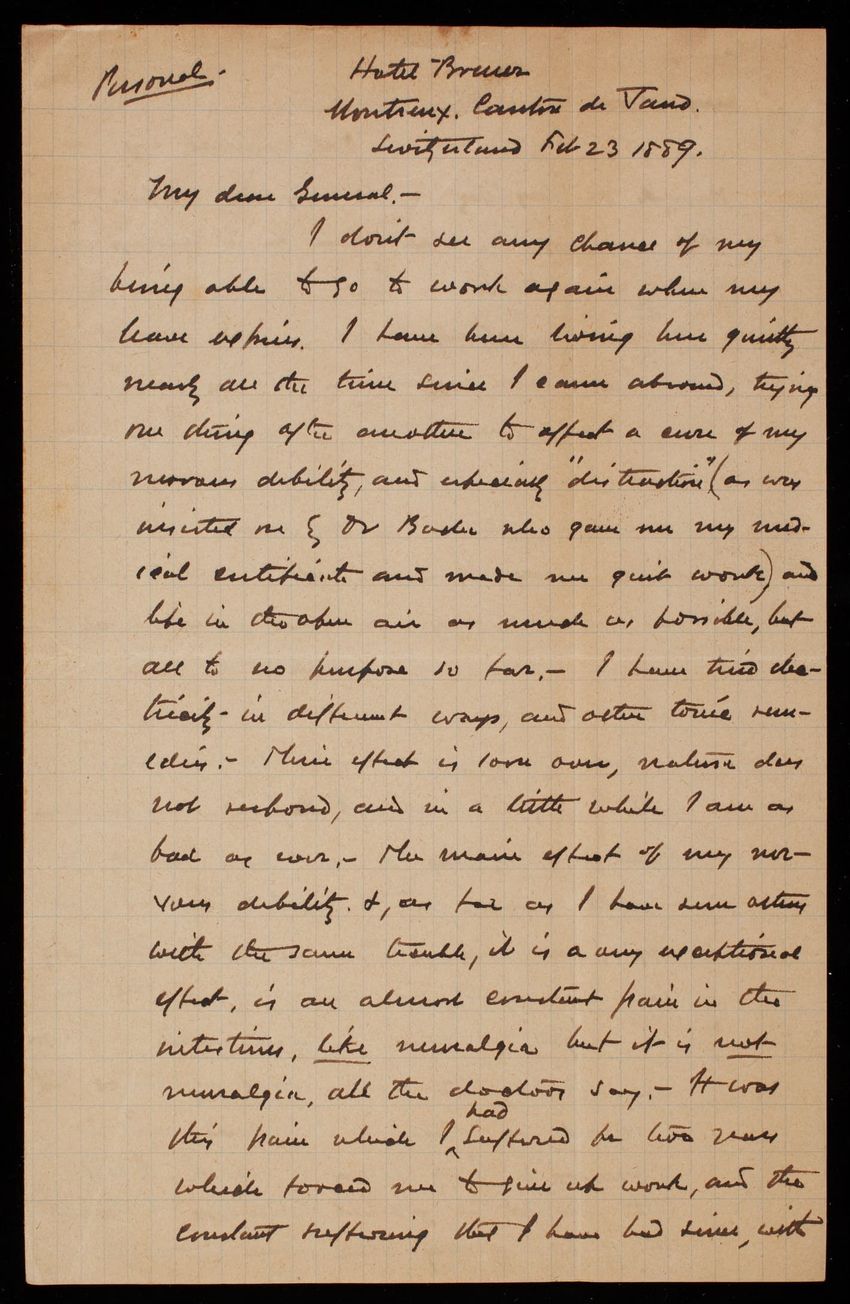 Personal.
Hotel Breuer
Montreux. Canton de Vaud.
Switzerland Feb 23 1889.
My dear General.—
I don't see any chance of my
being able to go to work again when my
leave expires. I have been living here quietly
nearly all the time since I came abroad, trying
one thing after another to effect a cure of my
nervous debility, and especially "distraction" (as was
insisted on by Dr who gave me my med-
ical certificate and made me quit work) and
life in the open air as much as possible, but
all to no purpose so far.— I have tried elec-
tricity in different ways, and other tonic rem-
edies.— Their effect is soon over, nature does
not respond, and in a little while I am as
bad as ever.— The main effect of my ner-
vous debility. &, as far as I have seen others
with the same trouble, it is a very exceptional
effect, is an almost constant pain in the
intestines, like neuralgia but it is not
neuralgia, all the doctors say.— It was
this pain which I had suffered for two years
which forced me to give up work, and the
constant suffering that I have had since, with